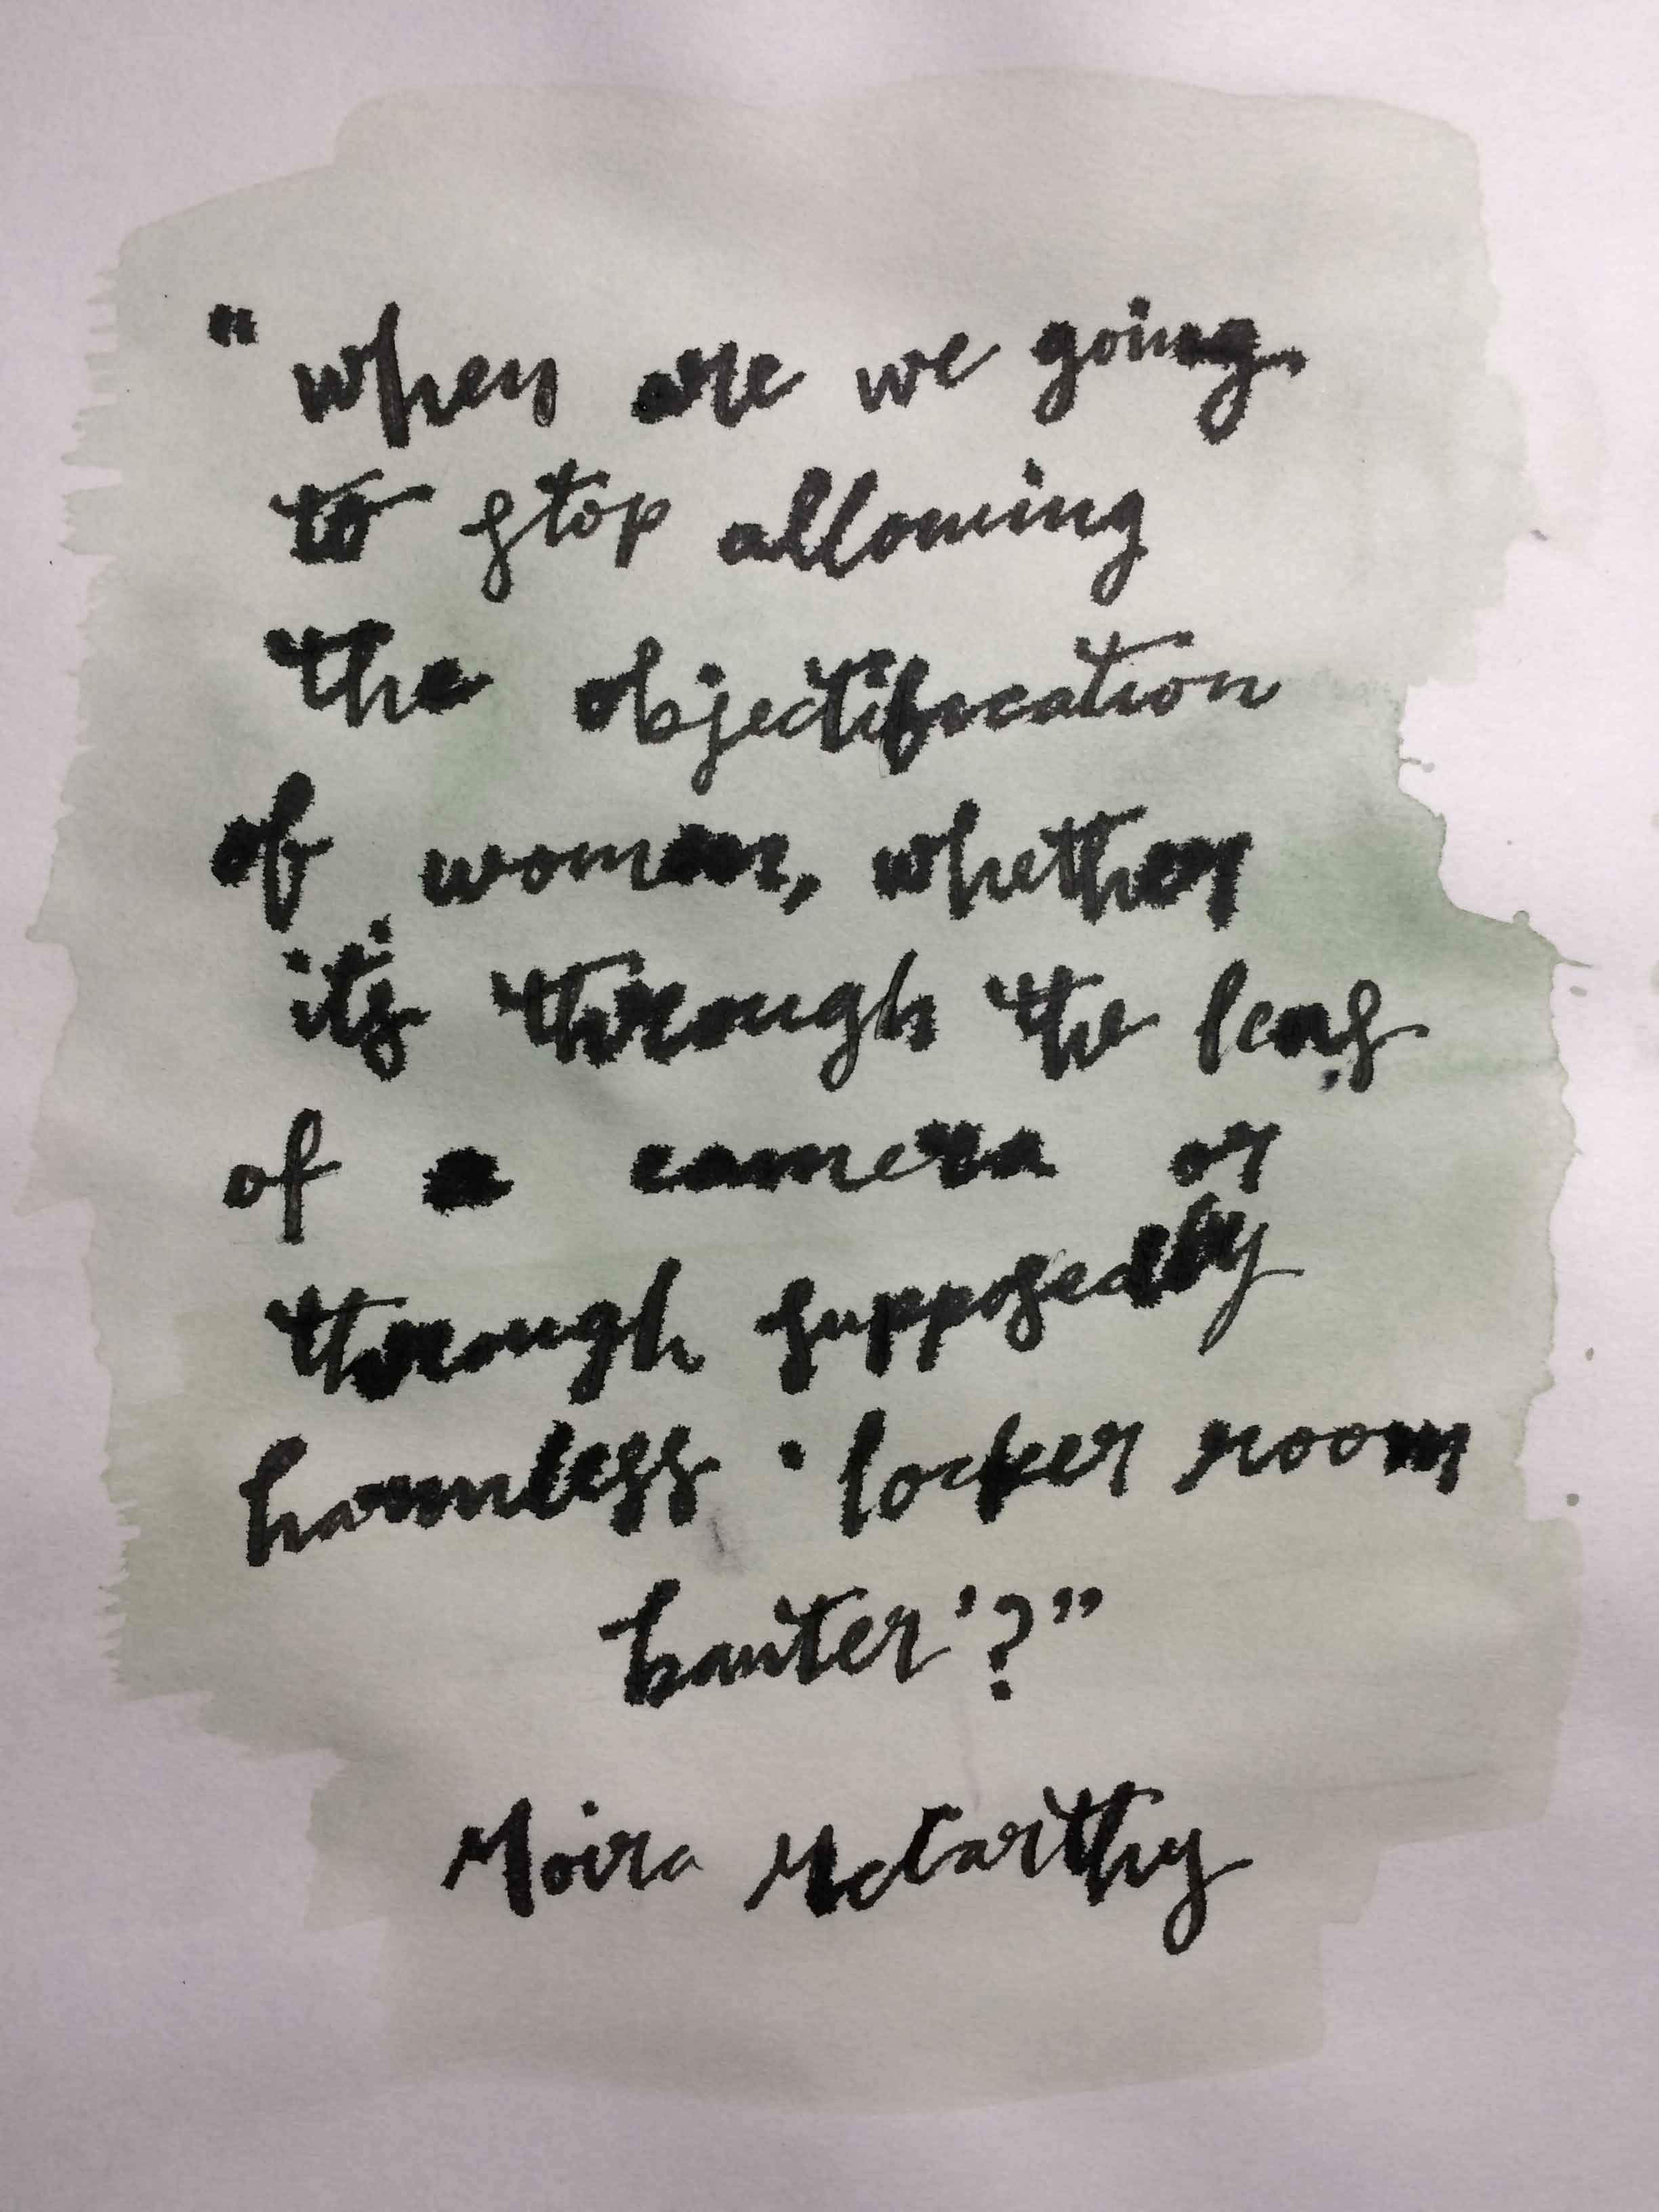 "when are we going
to stop allowing
the objectification
of women, whether
it's through the lens
of a camera or
through supposedly
harmless 'locker room
banter'?"
Moira McCarthy